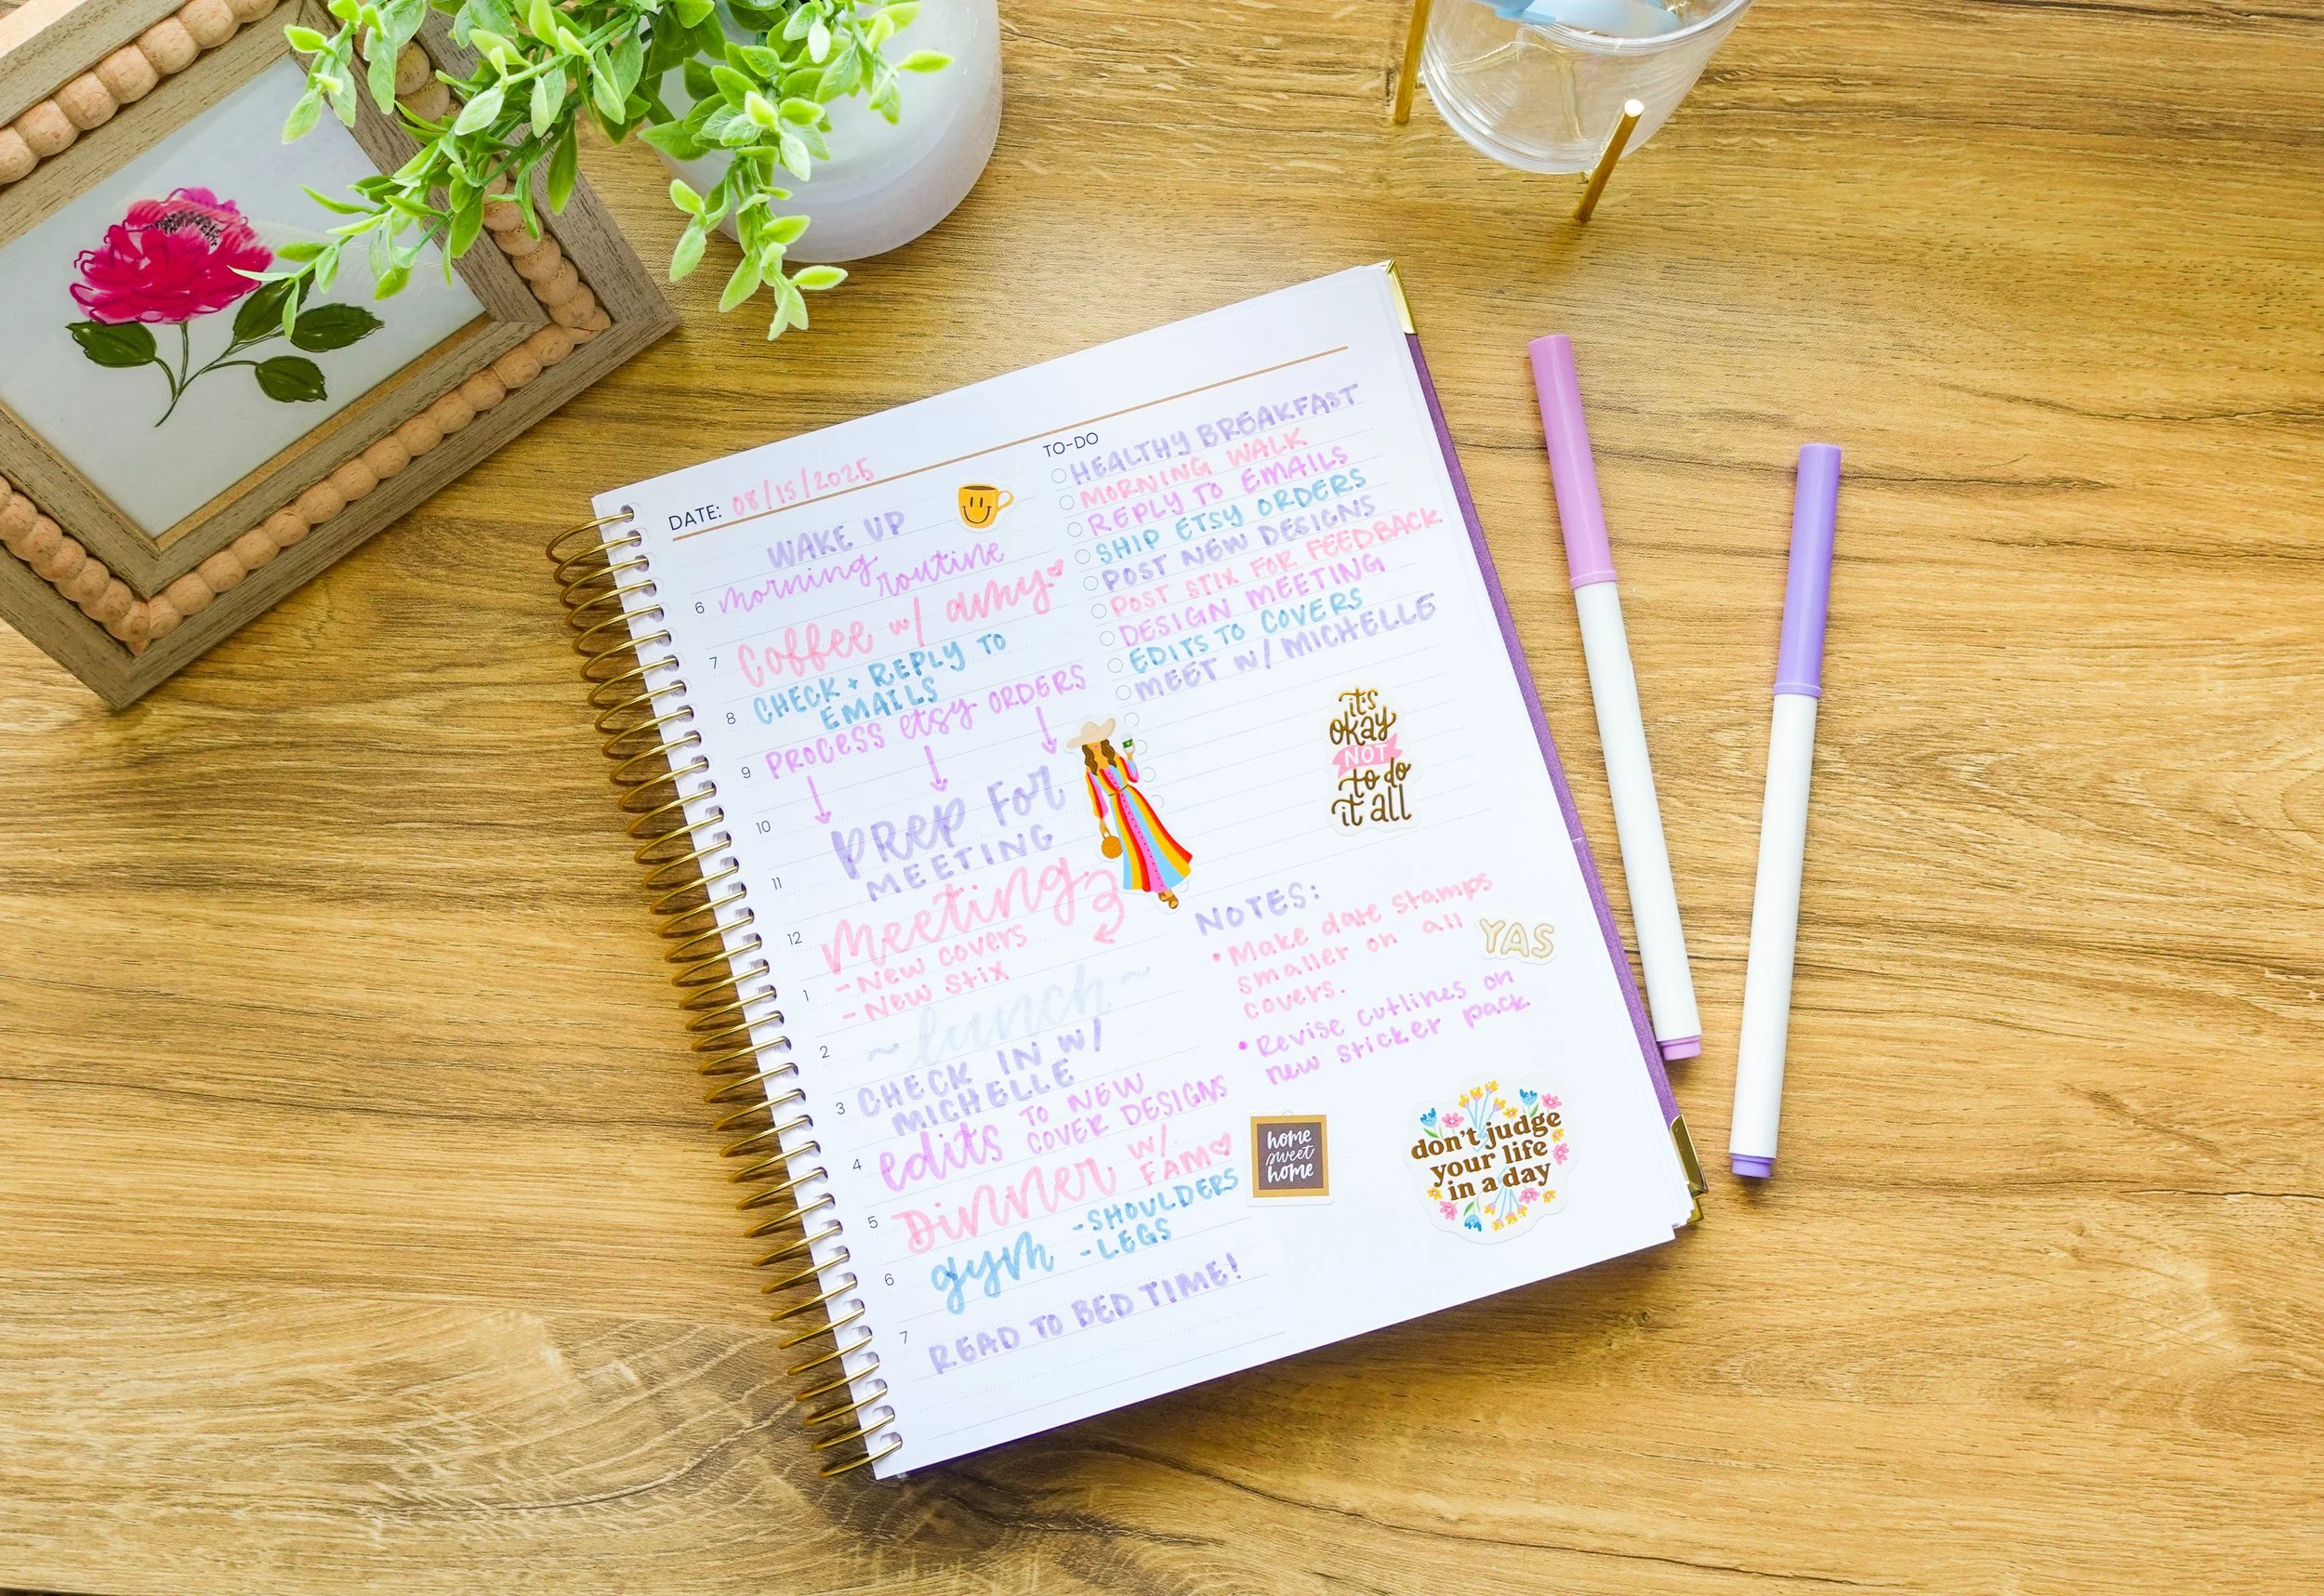 DATE: 08/15/2025
WAKE UP
6 morning routine
7 Coffee w/ amy
CHECK + REPLY TO
8 EMAILS
9 PROCESS etsy ORDERS
10 PREP FOR
11 MEETING
12 Meeting
- New covers
1 - New Stix
2 ~ lunch ~
CHECK IN W/
3 MICHELLE
4 edits TO NEW
COVER DESIGNS
5 Dinner w/
FAM
6 gym - SHOULDERS
- LEGS
7 READ TO BED TIME!
TO-DO
HEALTHY BREAKFAST
MORNING WALK
REPLY TO EMAILS
SHIP ETSY ORDERS
POST NEW DESIGNS
POST STIX FOR FEEDBACK
DESIGN MEETING
EDITS TO COVERS
MEET W/ MICHELLE
it's
okay
NOT
to do
it all
NOTES:
• Make date stamps
smaller on all
covers.
YAS
• Revise cutlines on
new sticker pack
home
sweet
home
don't judge
your life
in a day